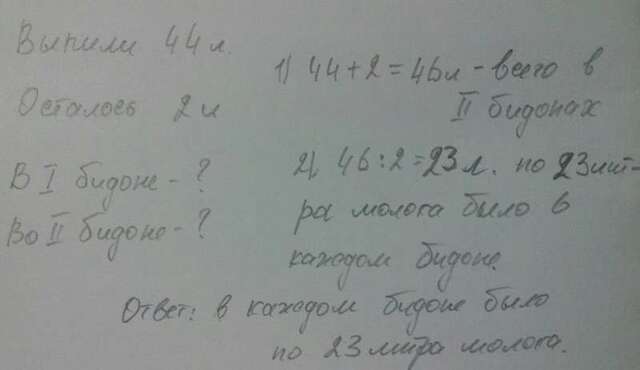 Выпили 44 л.
Осталось 2 л
В I бидоне - ?
Во II бидоне - ?
1) 44 + 2 = 46 л - всего в
II бидонах
2) 46 : 2 = 23 л. по 23 лит-
ра молога было в
каждом бидоне.
Ответ: в каждом бидоне было
по 23 литра молога.